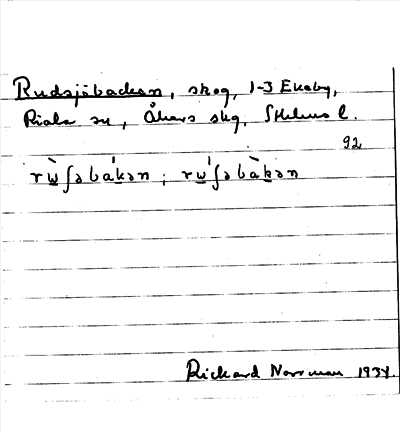 Rudsjöbackan, skog, 1-3 Ekeby,
Riala sn, Åkers skg, Sthlms l.
92
rẁʃəbákən; rẃʃəbàkən
Rickard Norrman 1934.